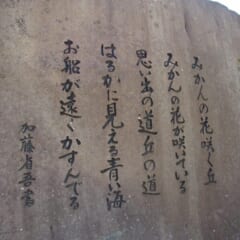 みかんの花咲く丘
みかんの花が咲いている
思い出の道丘の道
はるかに見える青い海
お船が遠くかすんでる
加藤省吾書